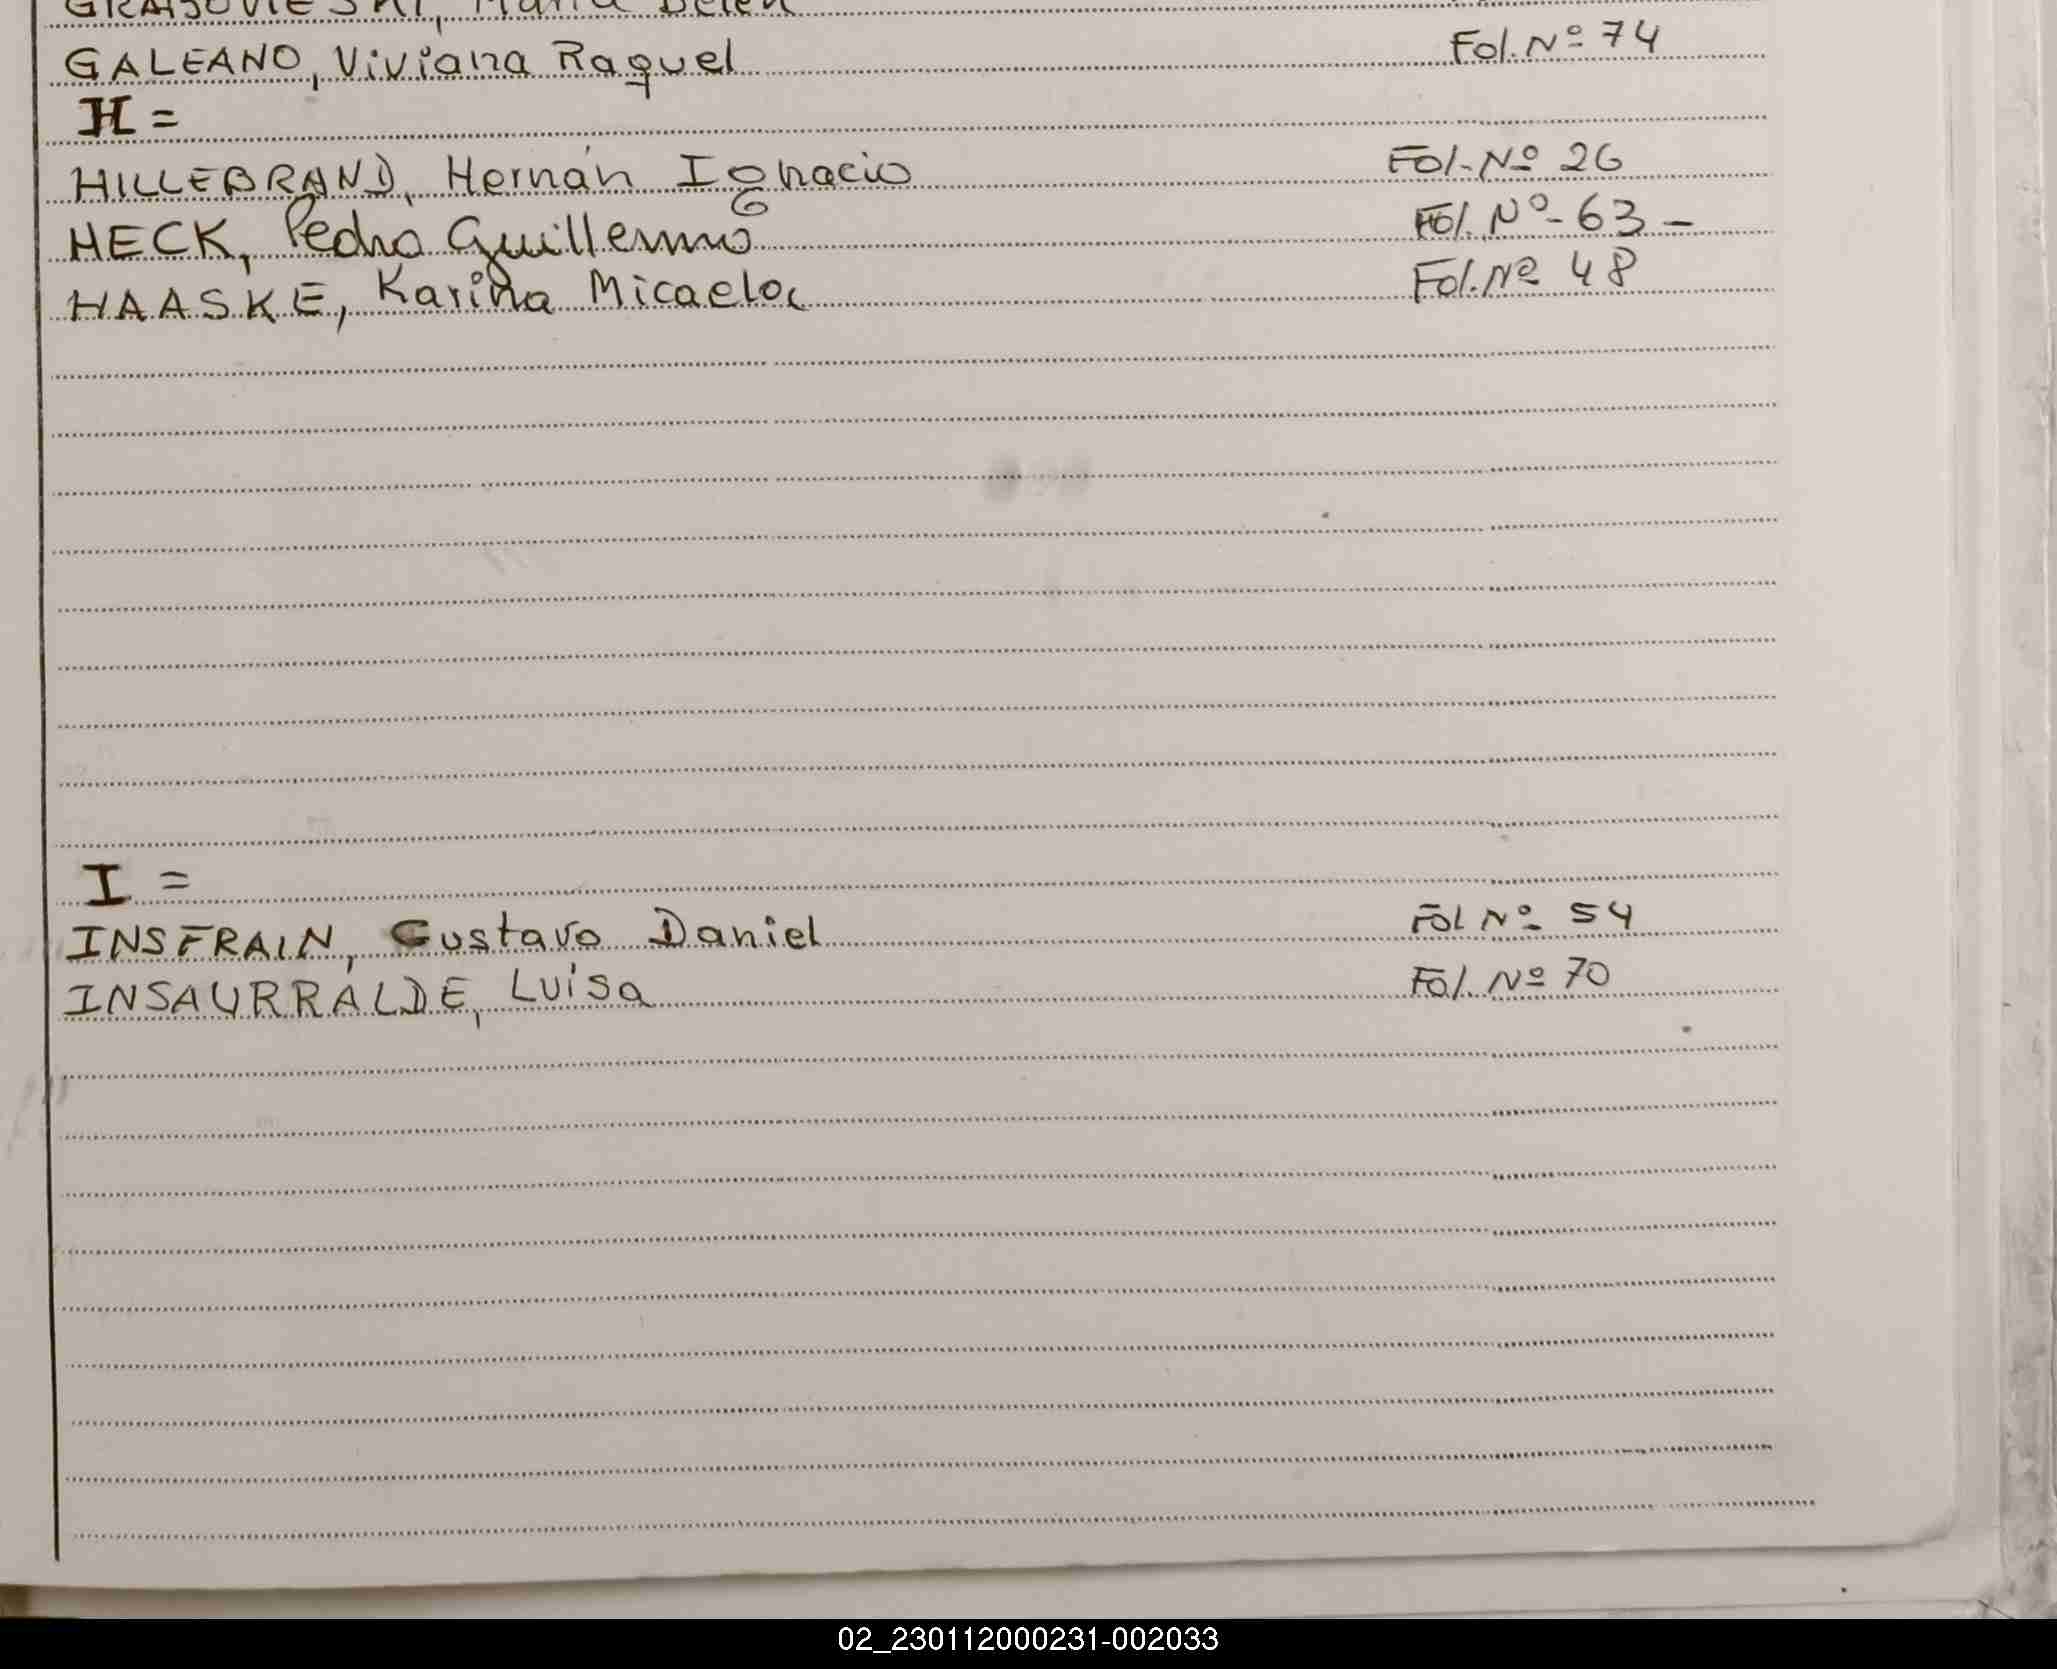 María Belén
GALEANO, Viviana Raquel Fol. Nº 74
H =
HILLEBRAND, Hernán Ignacio Fol. Nº 26
HECK, Pedro Guillermo Fol. Nº 63 -
HAASKE, Karina Micaela Fol. Nº 48
I =
INSFRAIN, Gustavo Daniel Fol Nº 54
INSAURRALDE, Luisa Fol. Nº 70
02_230112000231-002033